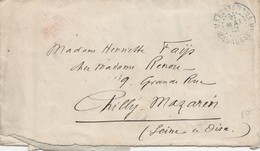 Madame Henriette Faijs
chez Madame Renou
9 Grande Rue
Chilly-Mazarin
(Seine et Oise)